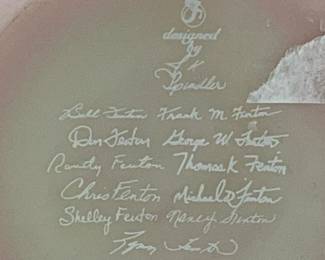 designed
by
Spindler
Bill Fenton Frank M. Fenton
Don Fenton George W Fenton
Randy Fenton Thomas K Fenton
Chris Fenton Michael D Fenton
Shelley Fenton Nancy Fenton
Lynn Fenton